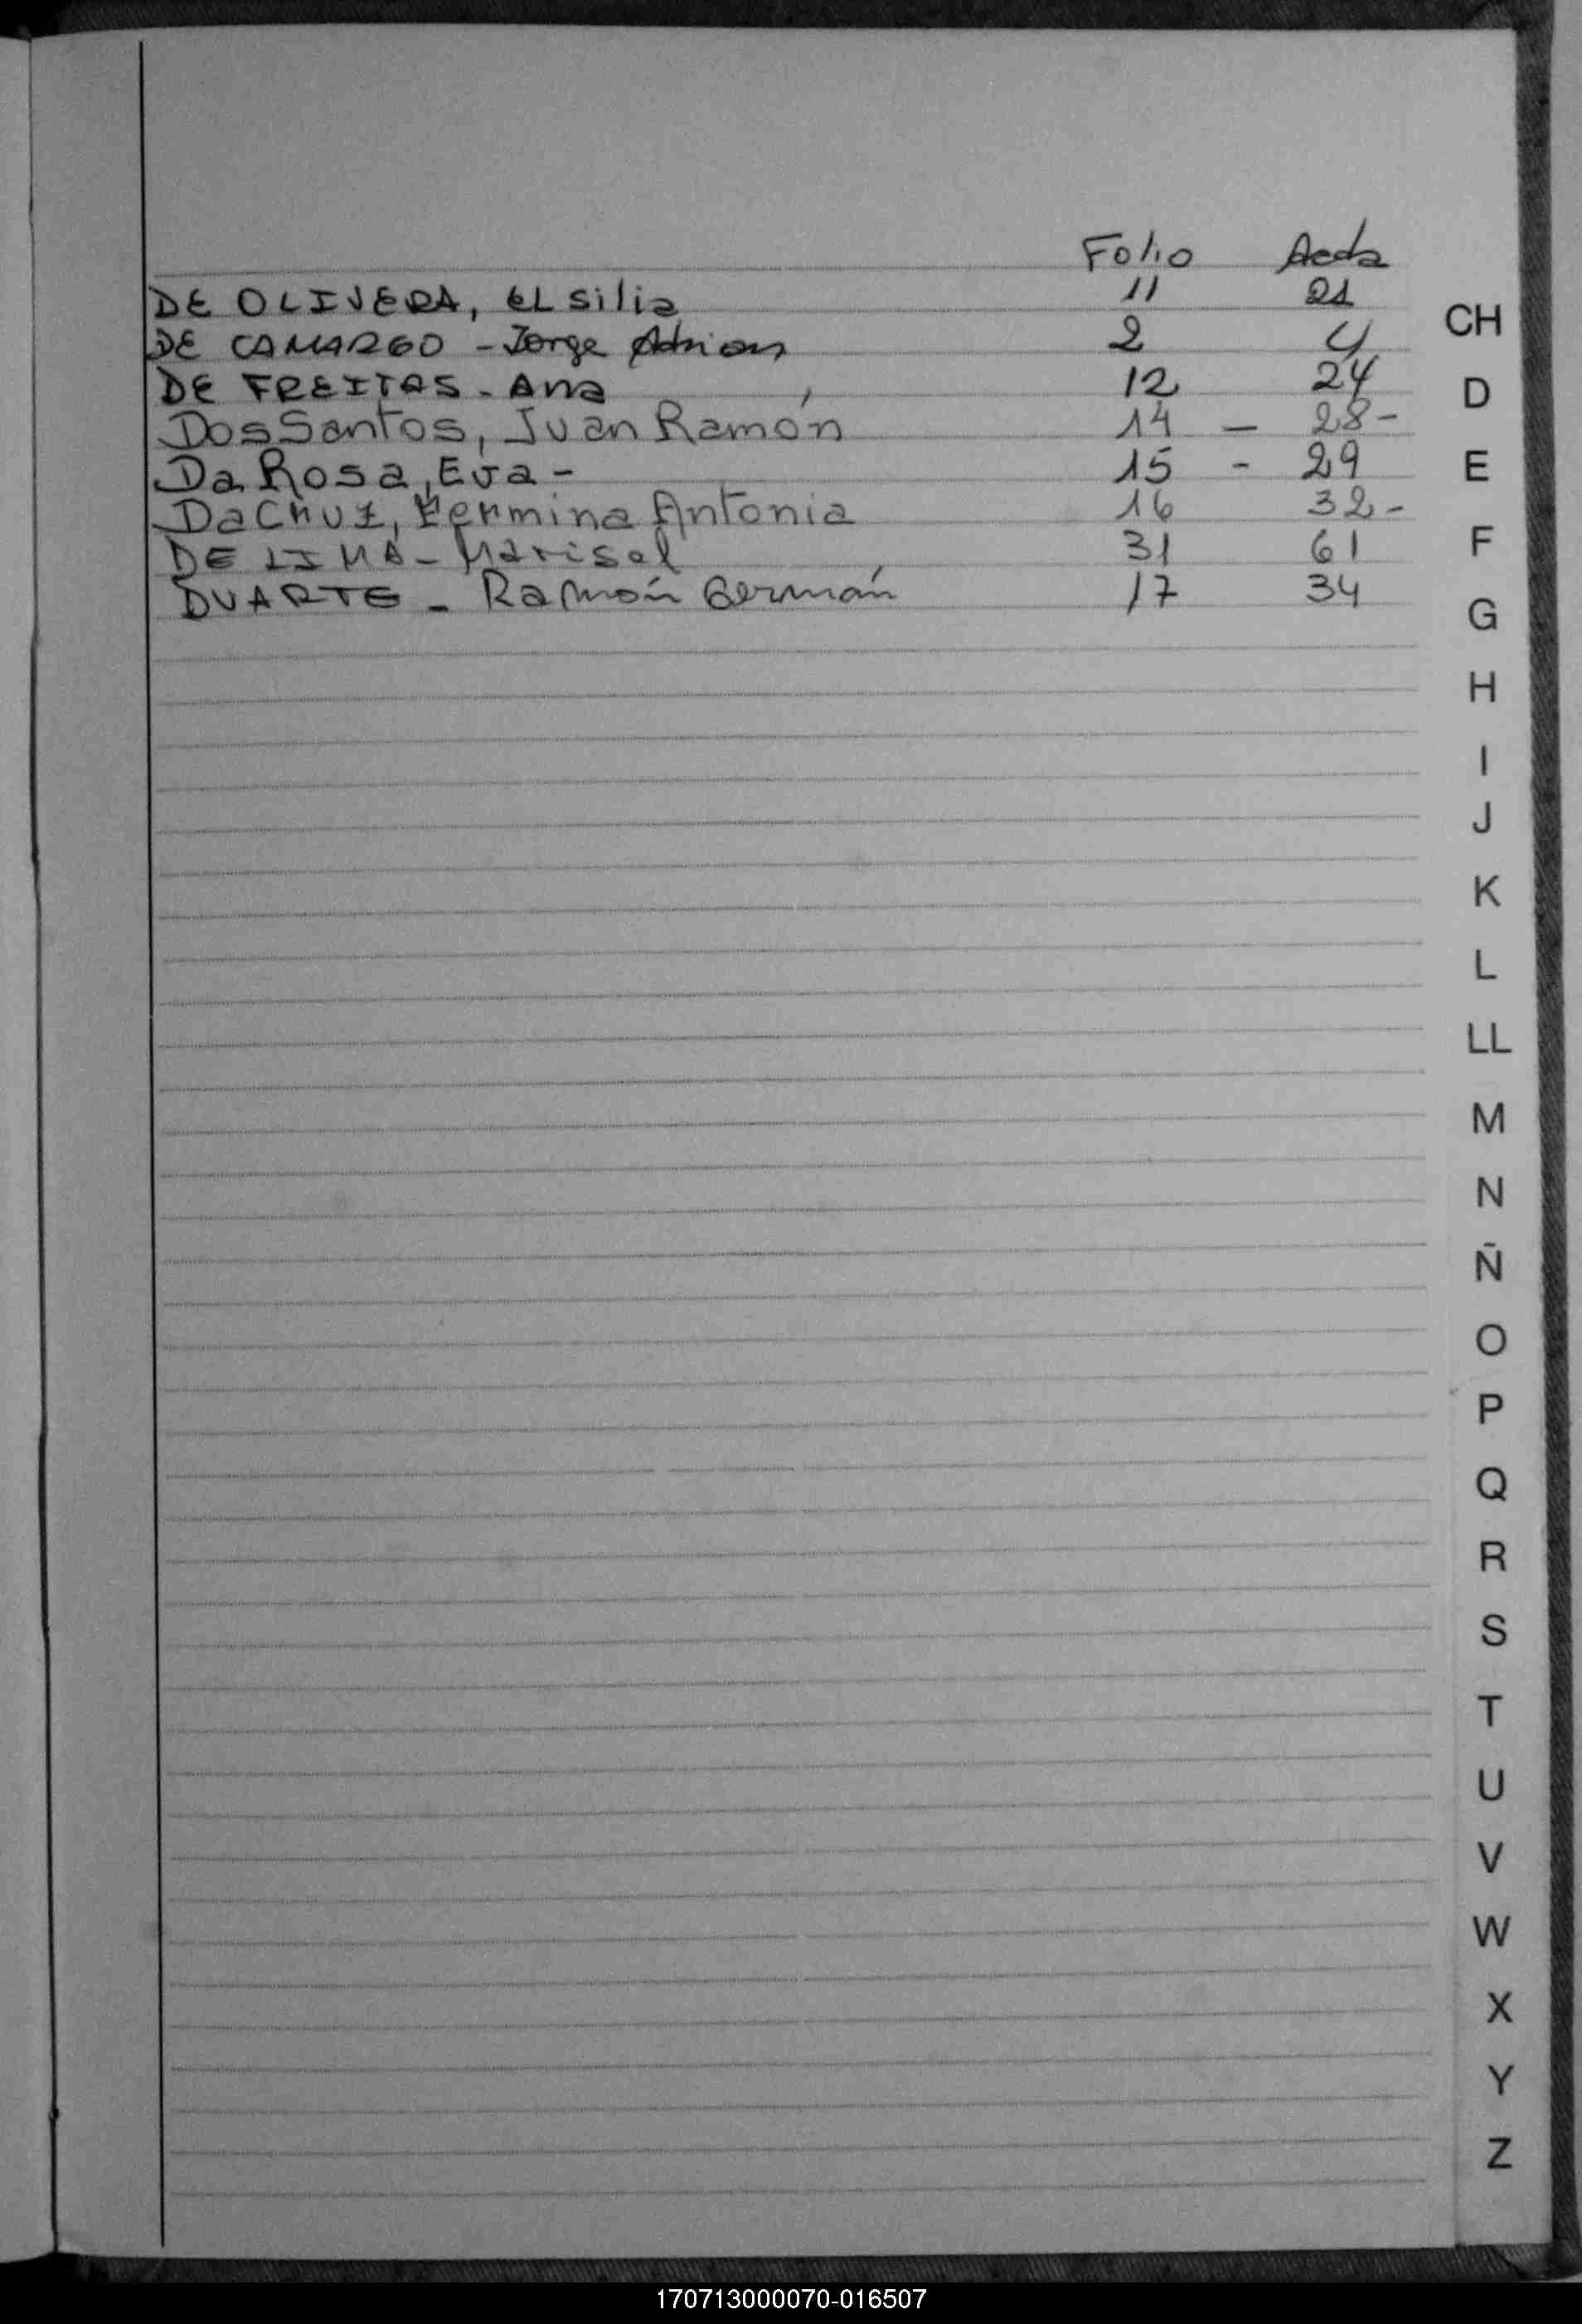 Folio Acta
DE OLIVERA, ELsilia 11 21
DE CAMARGO - Jorge Adrian 2 4
DE FREITAS - Ana 12 24
Dos Santos, Juan Ramón 14 - 28 -
Da Rosa, Eva - 15 - 29
Da Cruz, Hermina Antonia 16 32 -
DE LIMA - Marisel 31 61
DUARTE - Ramón Germán 17 34
CH
D
E
F
G
H
I
J
K
L
LL
M
N
Ñ
O
P
Q
R
S
T
U
V
W
X
Y
Z
170713000070-016507